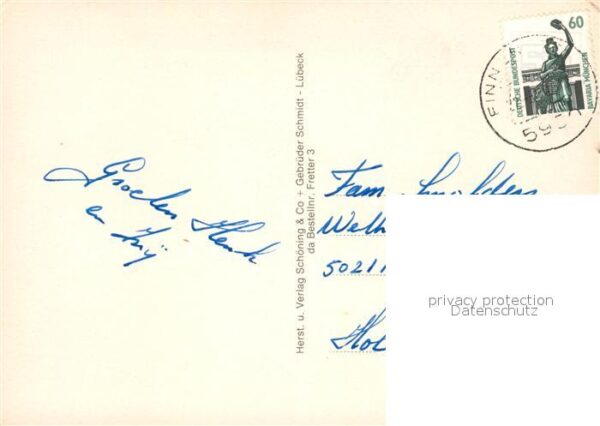 Groeten Henk
en
Herst. u. Verlag Schöning & Co + Gebrüder Schmidt - Lübeck
da Bestellnr. Fretter 3
60
DEUTSCHE BUNDESPOST
BAVARIA MÜNCHEN
FINN
595
Fam. Smolders
Welh
5021
Hol
privacy protection
Datenschutz